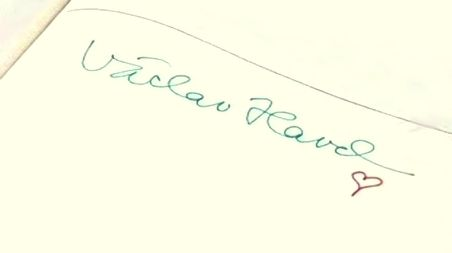 Václav Havel